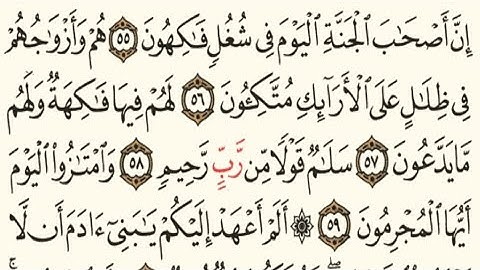 إِنَّ أَصْحَابَ الْجَنَّةِ الْيَوْمَ فِي شُغُلٍ فَاكِهُونَ ٥٥ هُمْ وَأَزْوَاجُهُمْ
فِي ظِلَالٍ عَلَى الْأَرَائِكِ مُتَّكِئُونَ ٥٦ لَهُمْ فِيهَا فَاكِهَةٌ وَلَهُم
مَّا يَدَّعُونَ ٥٧ سَلَامٌ قَوْلًا مِّن رَّبٍّ رَّحِيمٍ ٥٨ وَامْتَازُوا الْيَوْمَ
أَيُّهَا الْمُجْرِمُونَ ٥٩ ۞ أَلَمْ أَعْهَدْ إِلَيْكُمْ يَا بَنِي ءَادَمَ أَن لَّا